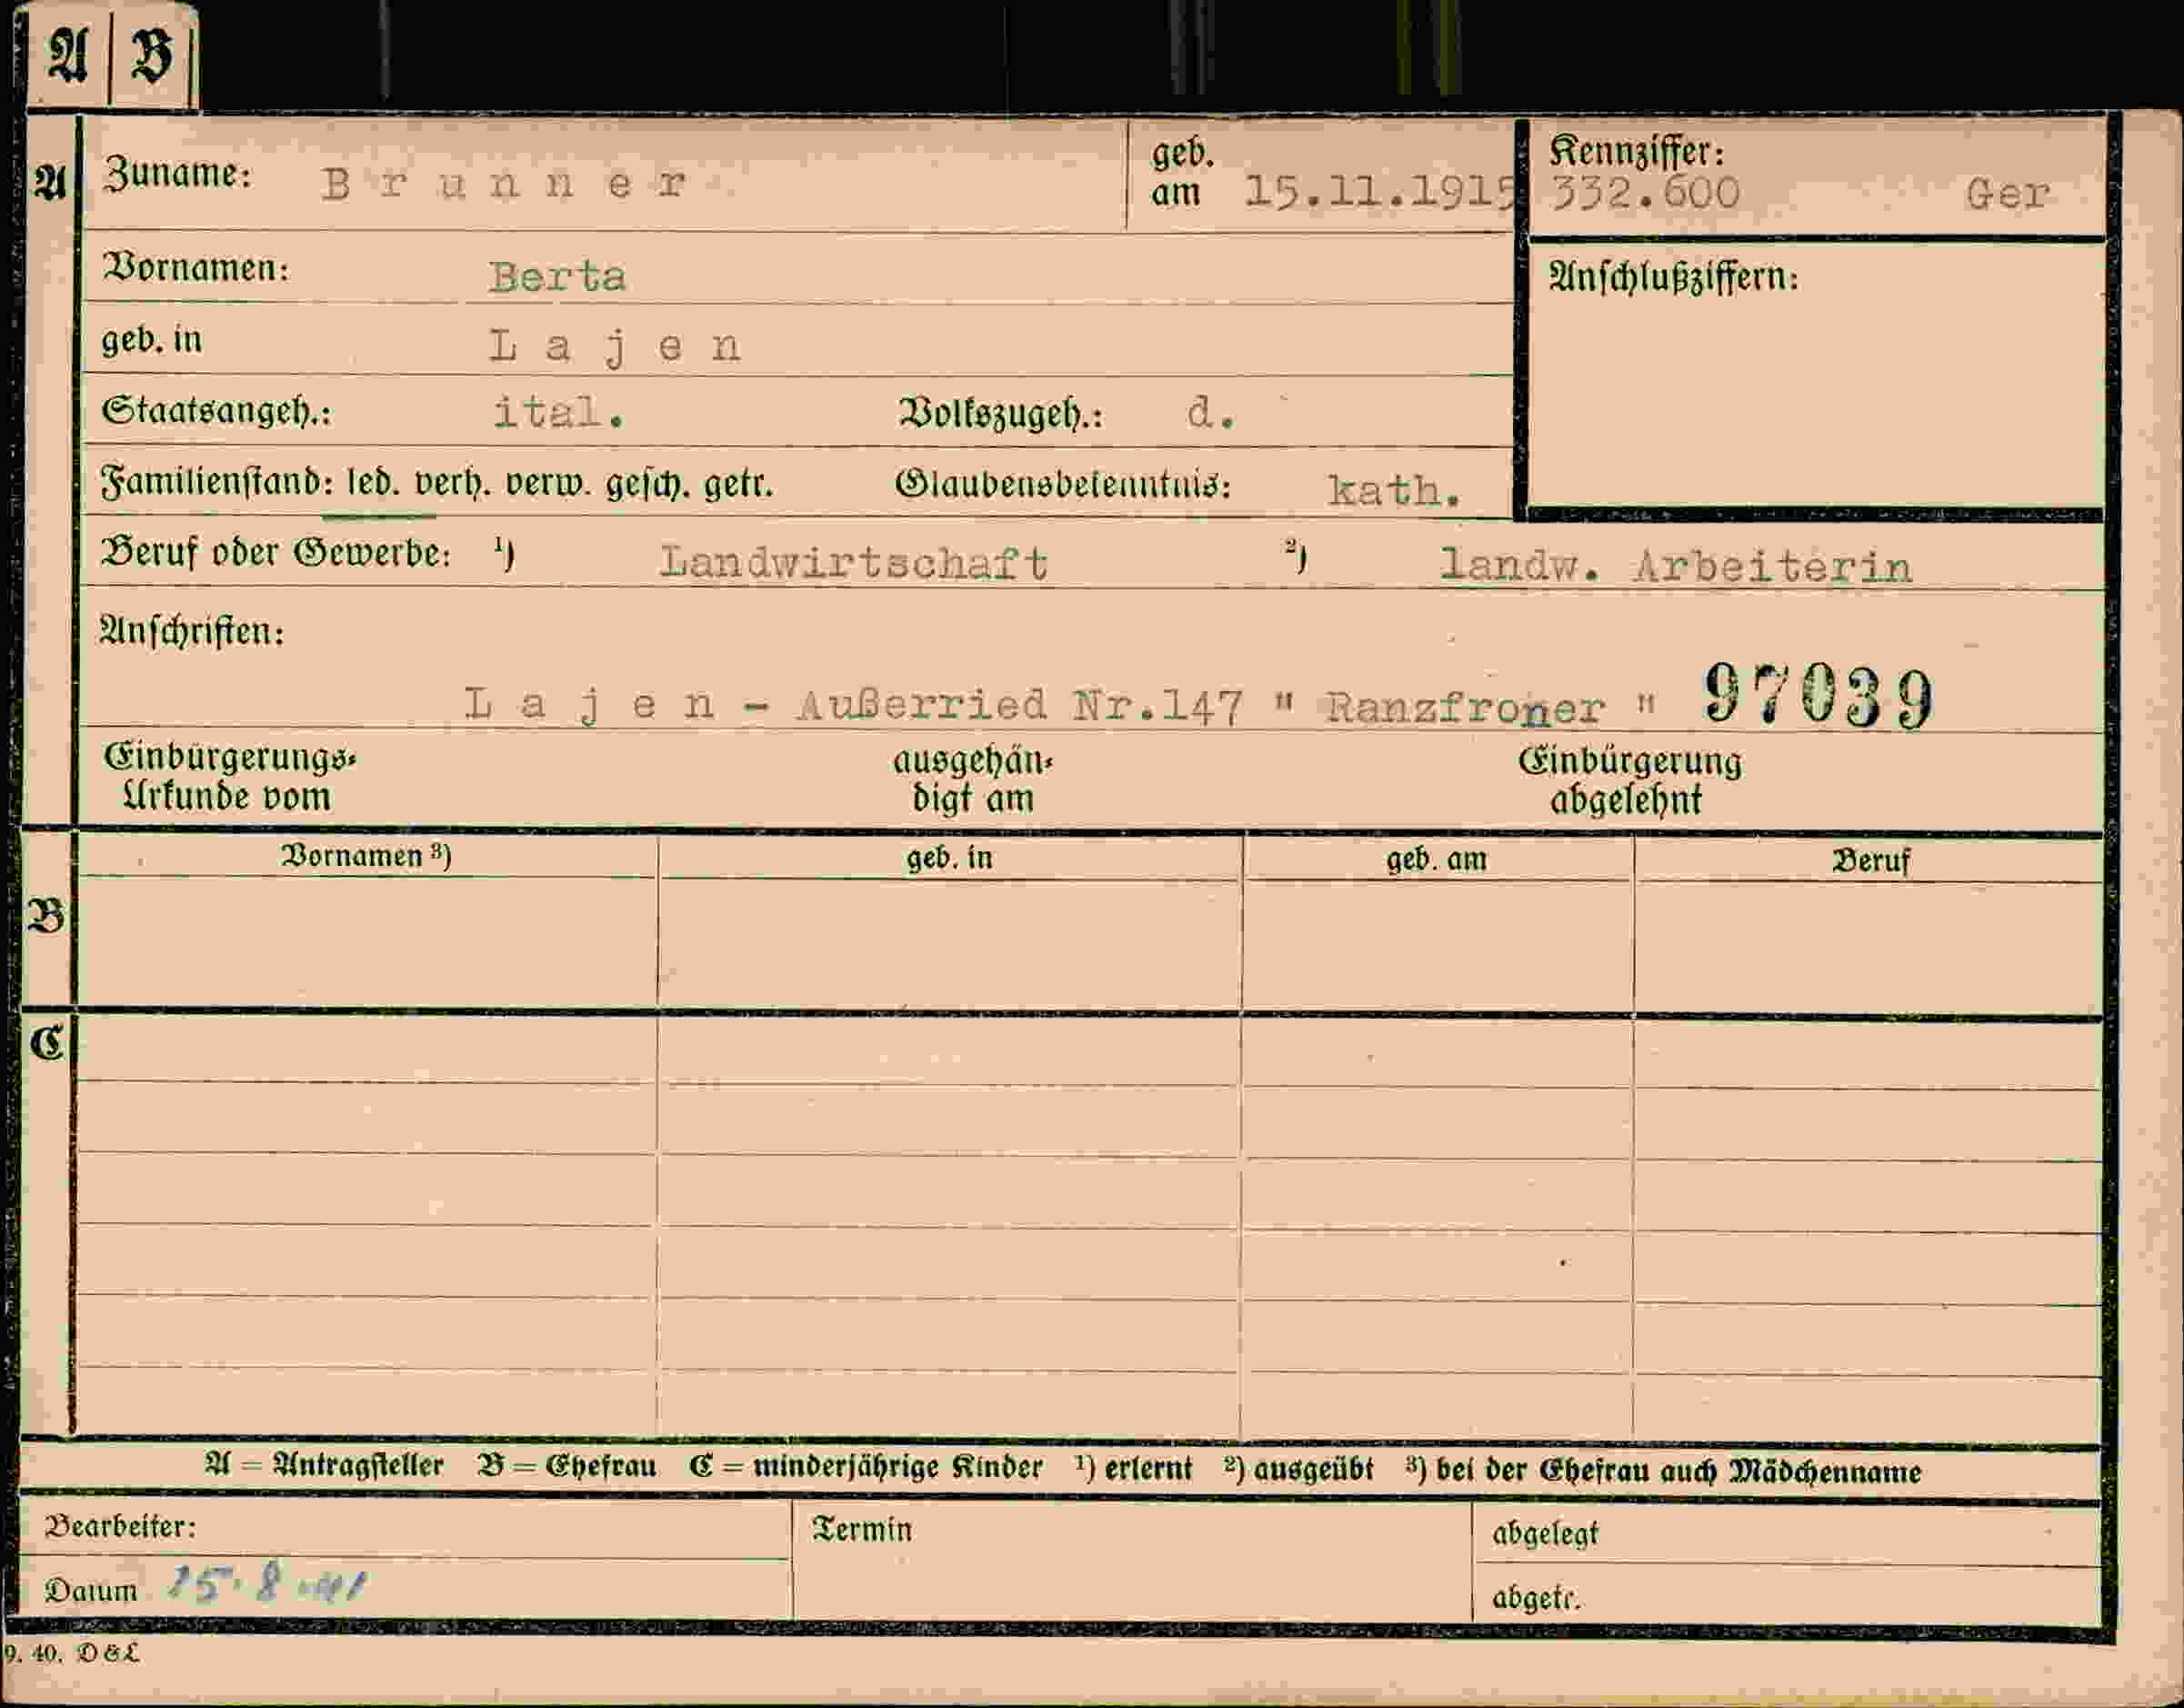 A B
A Zuname: Brunner geb. am 15.11.1915 Kennziffer: 332.600 Ger
Vornamen: Berta Anschlußziffern:
geb. in Lajen
Staatsangeh.: ital. Volkszugeh.: d.
Familienstand: led. verh. verw. gesch. getr. Glaubensbekenntnis: kath.
Beruf oder Gewerbe: 1) Landwirtschaft 2) landw. Arbeiterin
Anschriften:
Lajen - Außerried Nr.147 " Ranzfroner " 97039
Einbürgerungs- ausgehän- Einbürgerung
Urkunde vom digt am abgelehnt
Vornamen 3) geb. in geb. am Beruf
B
C
A = Antragsteller B = Ehefrau C = minderjährige Kinder 1) erlernt 2) ausgeübt 3) bei der Ehefrau auch Mädchenname
Bearbeiter: Termin abgelegt
Datum 15.8.41 abgetr.
9. 40. D & L